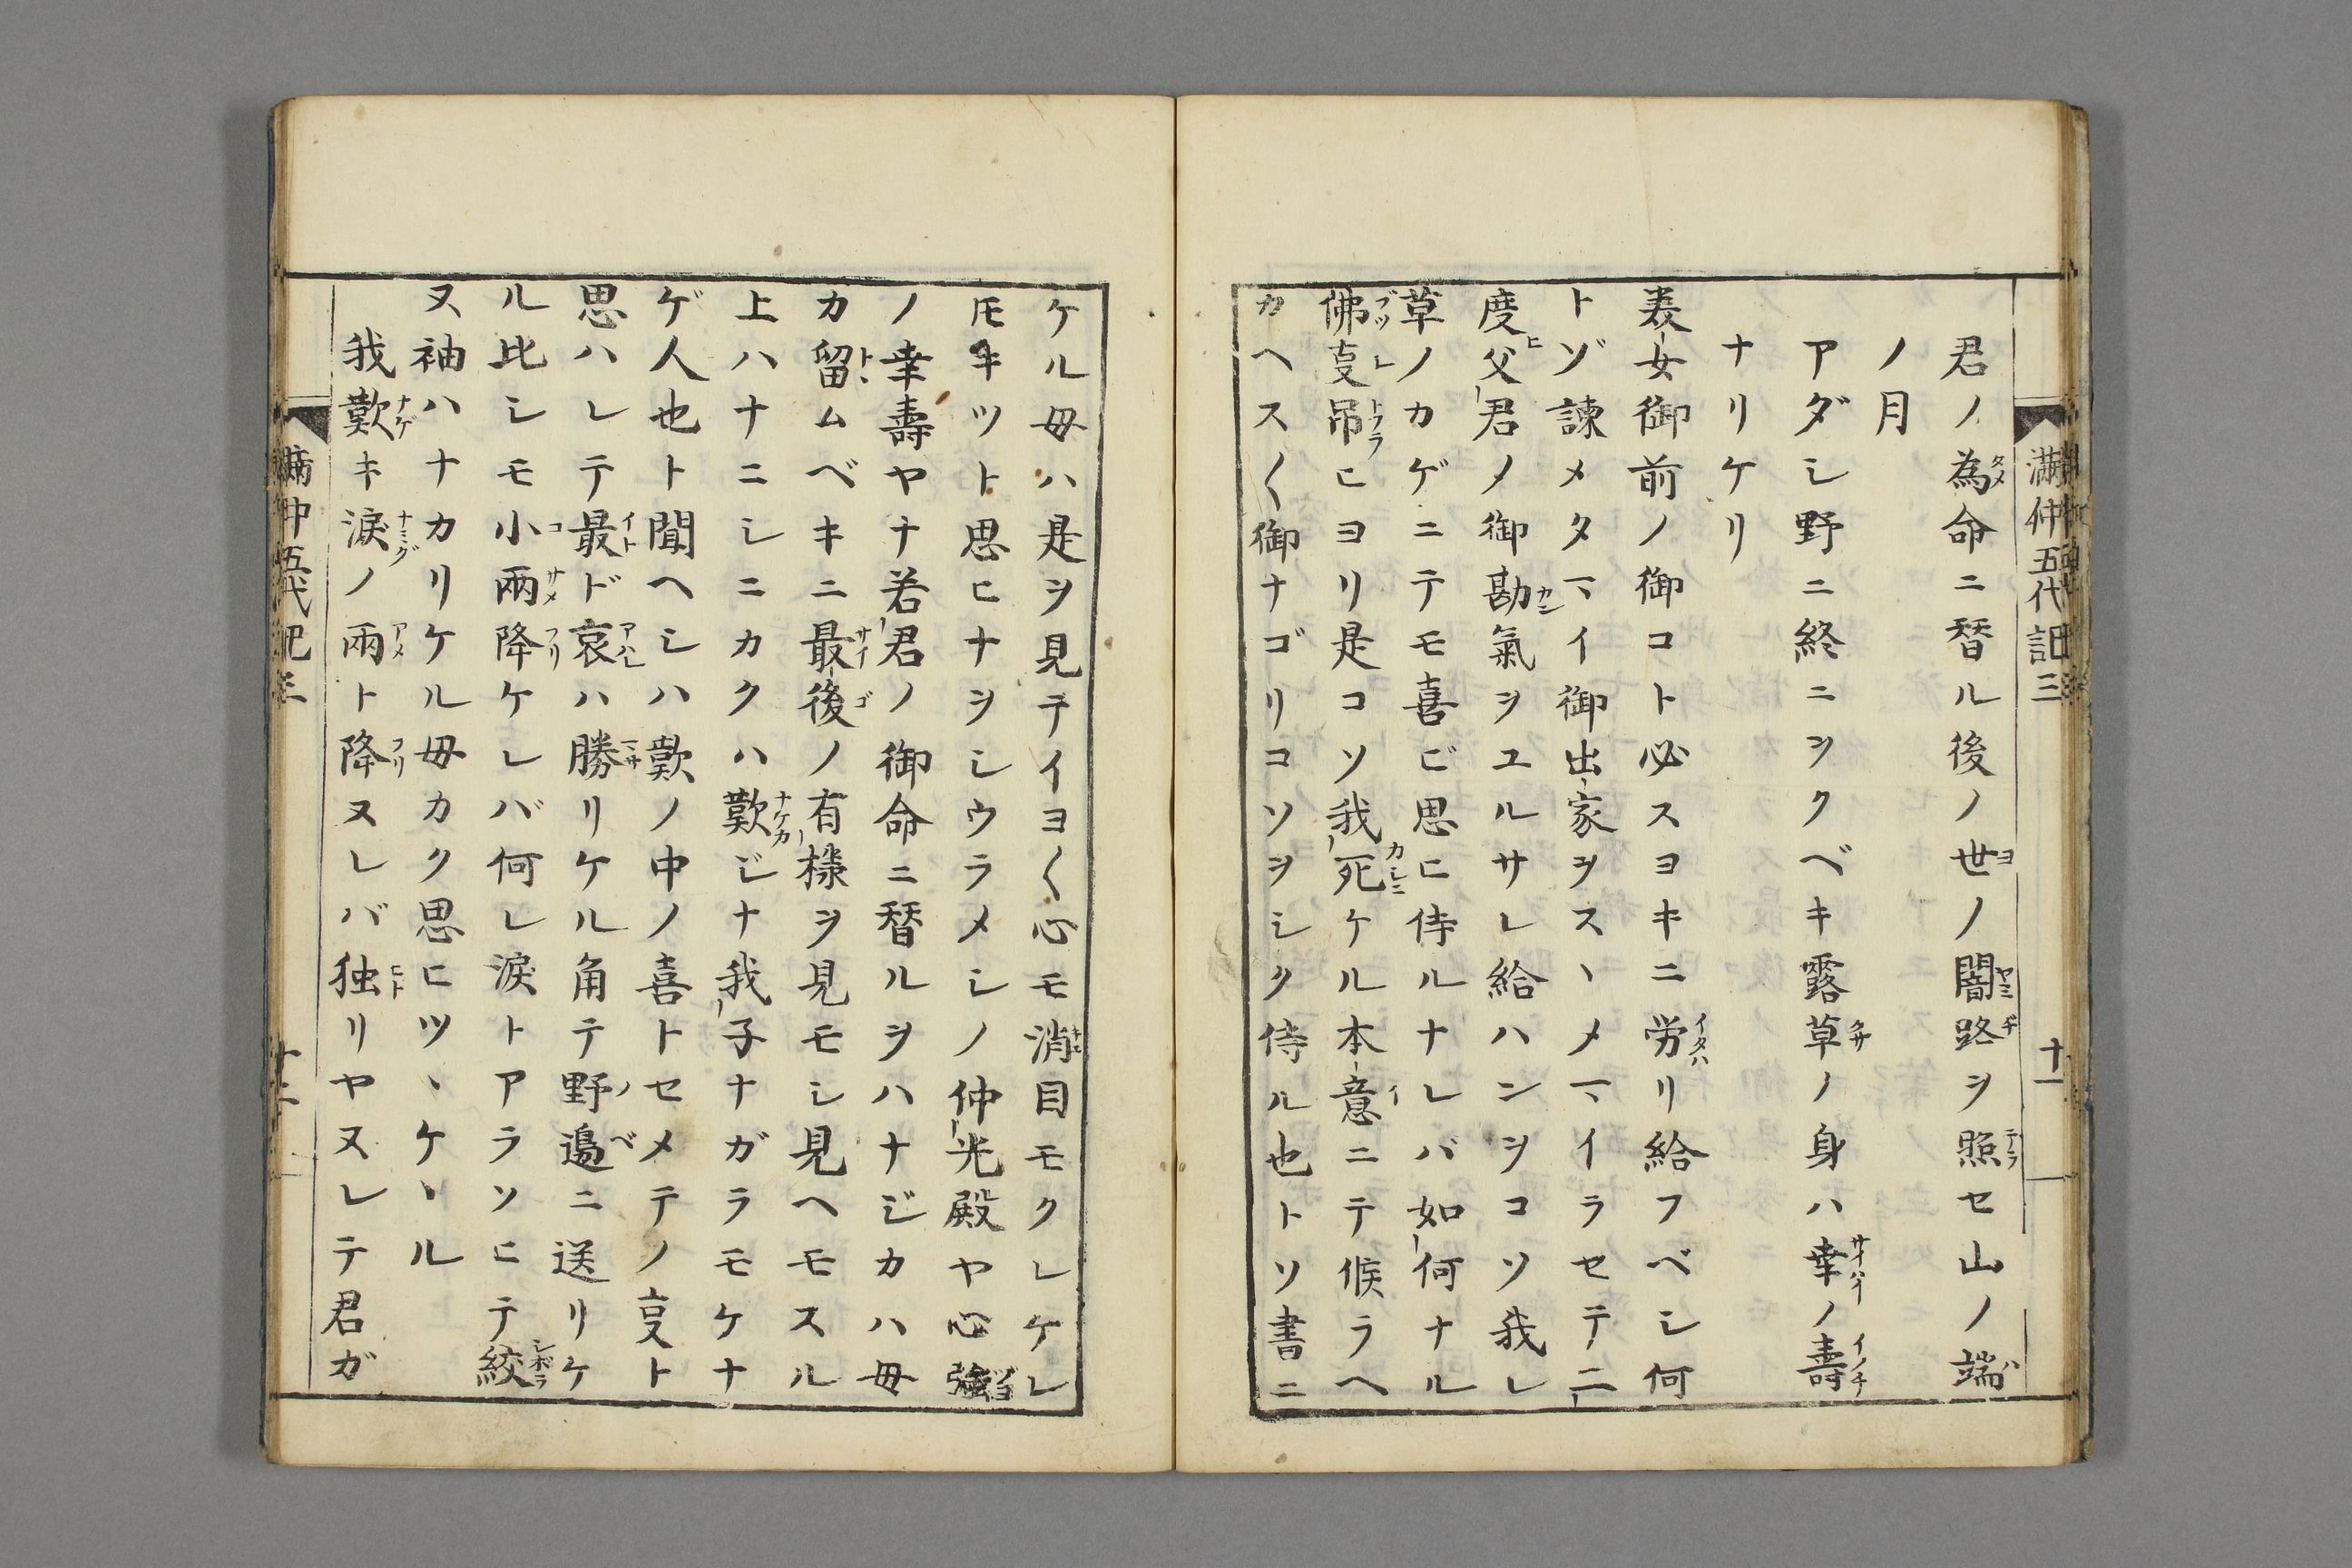 満仲五代記三　十一
君ノ為命ニ替ル後ノ世ノ闇路ヲ照セ山ノ端
ノ月
アダシ野ニ終ニヲクベキ露草ノ身ハ幸ノ壽
ナリケリ
美女御前ノ御コト必スヨキニ労リ給フベシ何
トゾ諫メタマイ御出家ヲスヽメマイラセテ二
度父君ノ御勘氣ヲユルサレ給ハンヲコソ我レ
草ノカゲニテモ喜ビ思ヒ侍ルナレバ如何ナル
佛叓吊ヒヨリ是コソ我死ケル本意ニテ候ラヘ
カヘス〱御ナゴリコソヲシク侍ル也トソ書ニ
ケル母ハ是ヲ見テイヨ〱心モ消目モクレケレ
𪜈キツト思ヒナヲシウラメシノ仲光殿ヤ心強
ノ幸壽ヤナ若君ノ御命ニ替ルヲハナジカハ母
カ留ムベキニ最後ノ有様ヲ見モシ見ヘモスル
上ハナニシニカクハ歎ジナ我子ナガラモケナ
ゲ人也ト聞ヘシハ歎ノ中ノ喜トセメテノ叓ト
思ハレテ最ド哀ハ勝リケル角テ野邉ニ送リケ
ル比シモ小雨降ケレバ何レ涙トアラソヒテ絞
ヌ袖ハナカリケル母カク思ヒツヽケヽル
我歎キ涙ノ雨ト降ヌレバ独リヤヌレテ君ガ
満仲五代記三　十二